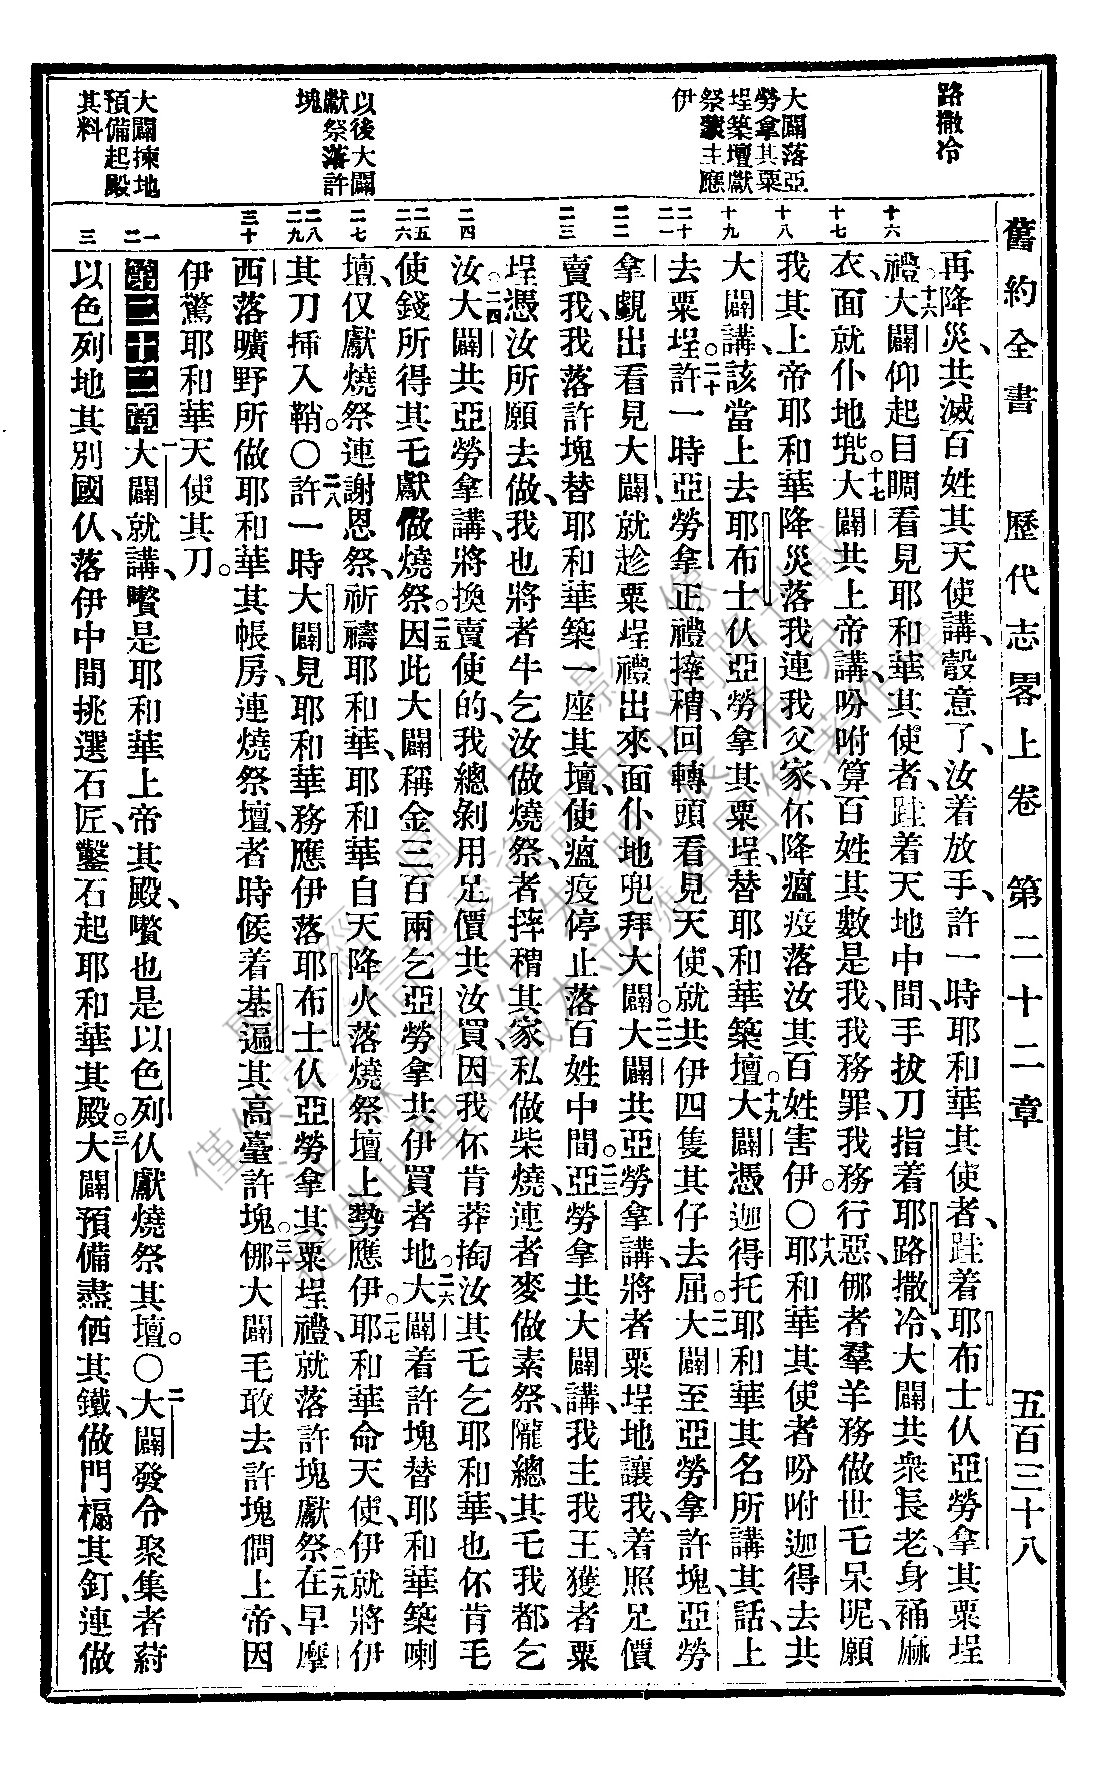 舊約全書 歷代志畧上卷 第二十二章 五百三十八
路撒冷
大闢落亞
勞拿其粟
埕築壇獻
祭主應
伊
以後大闢
獻祭落許
塊
大闢揀地
預備起殿
其料
再降災、共滅百姓其天使講、彀意了、汝着放手、許一時耶和華其使者、跬着耶布士仈亞勞拿其粟埕
禮。十六大闢仰起目睭看見耶和華其使者、跬着天地中間、手拔刀指着耶路撒冷、大闢共衆長老、身補麻
衣、面就仆地。十七大闢共上帝講、吩咐算百姓其數是我、我務罪、我務行惡、㑚者羣羊務做世乇呆呢、願
我其上帝耶和華降災落我連我父家、伓降瘟疫落汝其百姓害伊。〇十八耶和華其使者吩咐迦得去共
大闢講、該當上去耶布士仈亞勞拿其粟埕、替耶和華築壇。十九大闢憑迦得托耶和華其名所講其話、上
去粟埕。二十許一時亞勞拿正禮摔穳、回轉頭看見天使、就共伊四隻其仔去屈。二一大闢至亞勞拿許塊、亞勞
拿覷出看見大闢、就趁粟埕禮出來、面仆地兜拜大闢。二二大闢共亞勞拿講、將者粟埕地讓我、着照足價
賣我、我落許塊替耶和華築一座其壇、使瘟疫停止落百姓中間。二三亞勞拿共大闢講、我主我王、獲者粟
埕、憑汝所願去做、我也將者牛乞汝做燒祭、者摔穳其家私做柴燒、連者麥做素祭、隴總其乇我都乞
汝。二四大闢共亞勞拿講、將換賣使的、我總剝用足價共汝買、因我伓肯莽掏汝其乇乞耶和華、也伓肯毛
使錢所得其乇獻做燒祭。二五因此大闢稱金三百兩乞亞勞拿、共伊買者地。二六大闢着許塊替耶和華築喇
壇、仅獻燒祭連謝恩祭、祈禱耶和華、耶和華自天降火落燒祭壇上勢應伊。二七耶和華命天使、伊就將伊
其刀揷入鞘。〇二八許一時大闢見耶和華務應伊落耶布士仈亞勞拿其粟埕禮、就落許塊獻祭。二九在早摩
西落曠野所做耶和華其帳房、連燒祭壇、者時候着基遍其高臺許塊。三十㑚大闢毛敢去許塊問上帝、因
伊驚耶和華天使其刀。
第二十二章 一大闢就講、嚽是耶和華上帝其殿、嚽也是以色列仈獻燒祭其壇。〇二大闢發令聚集者蔚
以色列地其別國仈、落伊中間挑選石匠、鑿石起耶和華其殿。三大闢預備盡価其鐵、做門榻其釘、連做
十六
十七
十八
十九
二十
二一
二二
二三
二四
二五
二六
二七
二八
二九
三十
一
二
三